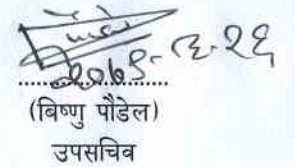 २०७९-८-२६
(बिष्णु पौडेल)
उपसचिव